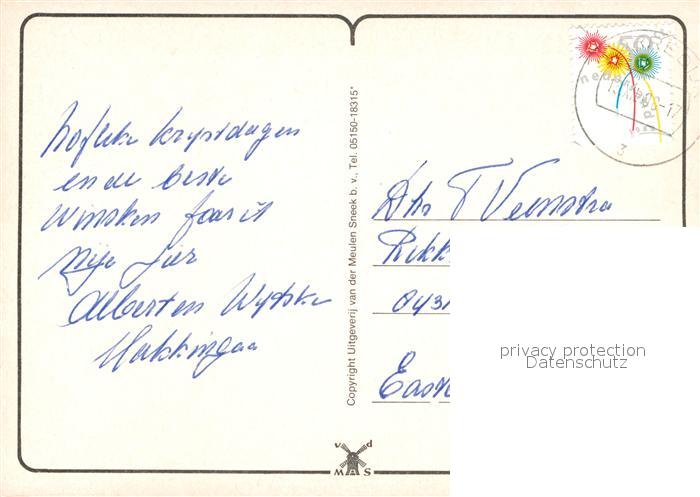 noflike krystdagen
en de beste
Winsken foar it
Nije jier
Albert en Wytske
Makkinga
Copyright Uitgeverij van der Meulen Sneek b. v., Tel. 05150-18315*
v d
MAS
nederland
3
Dhr T Veenstra
Easte
privacy protection
Datenschutz